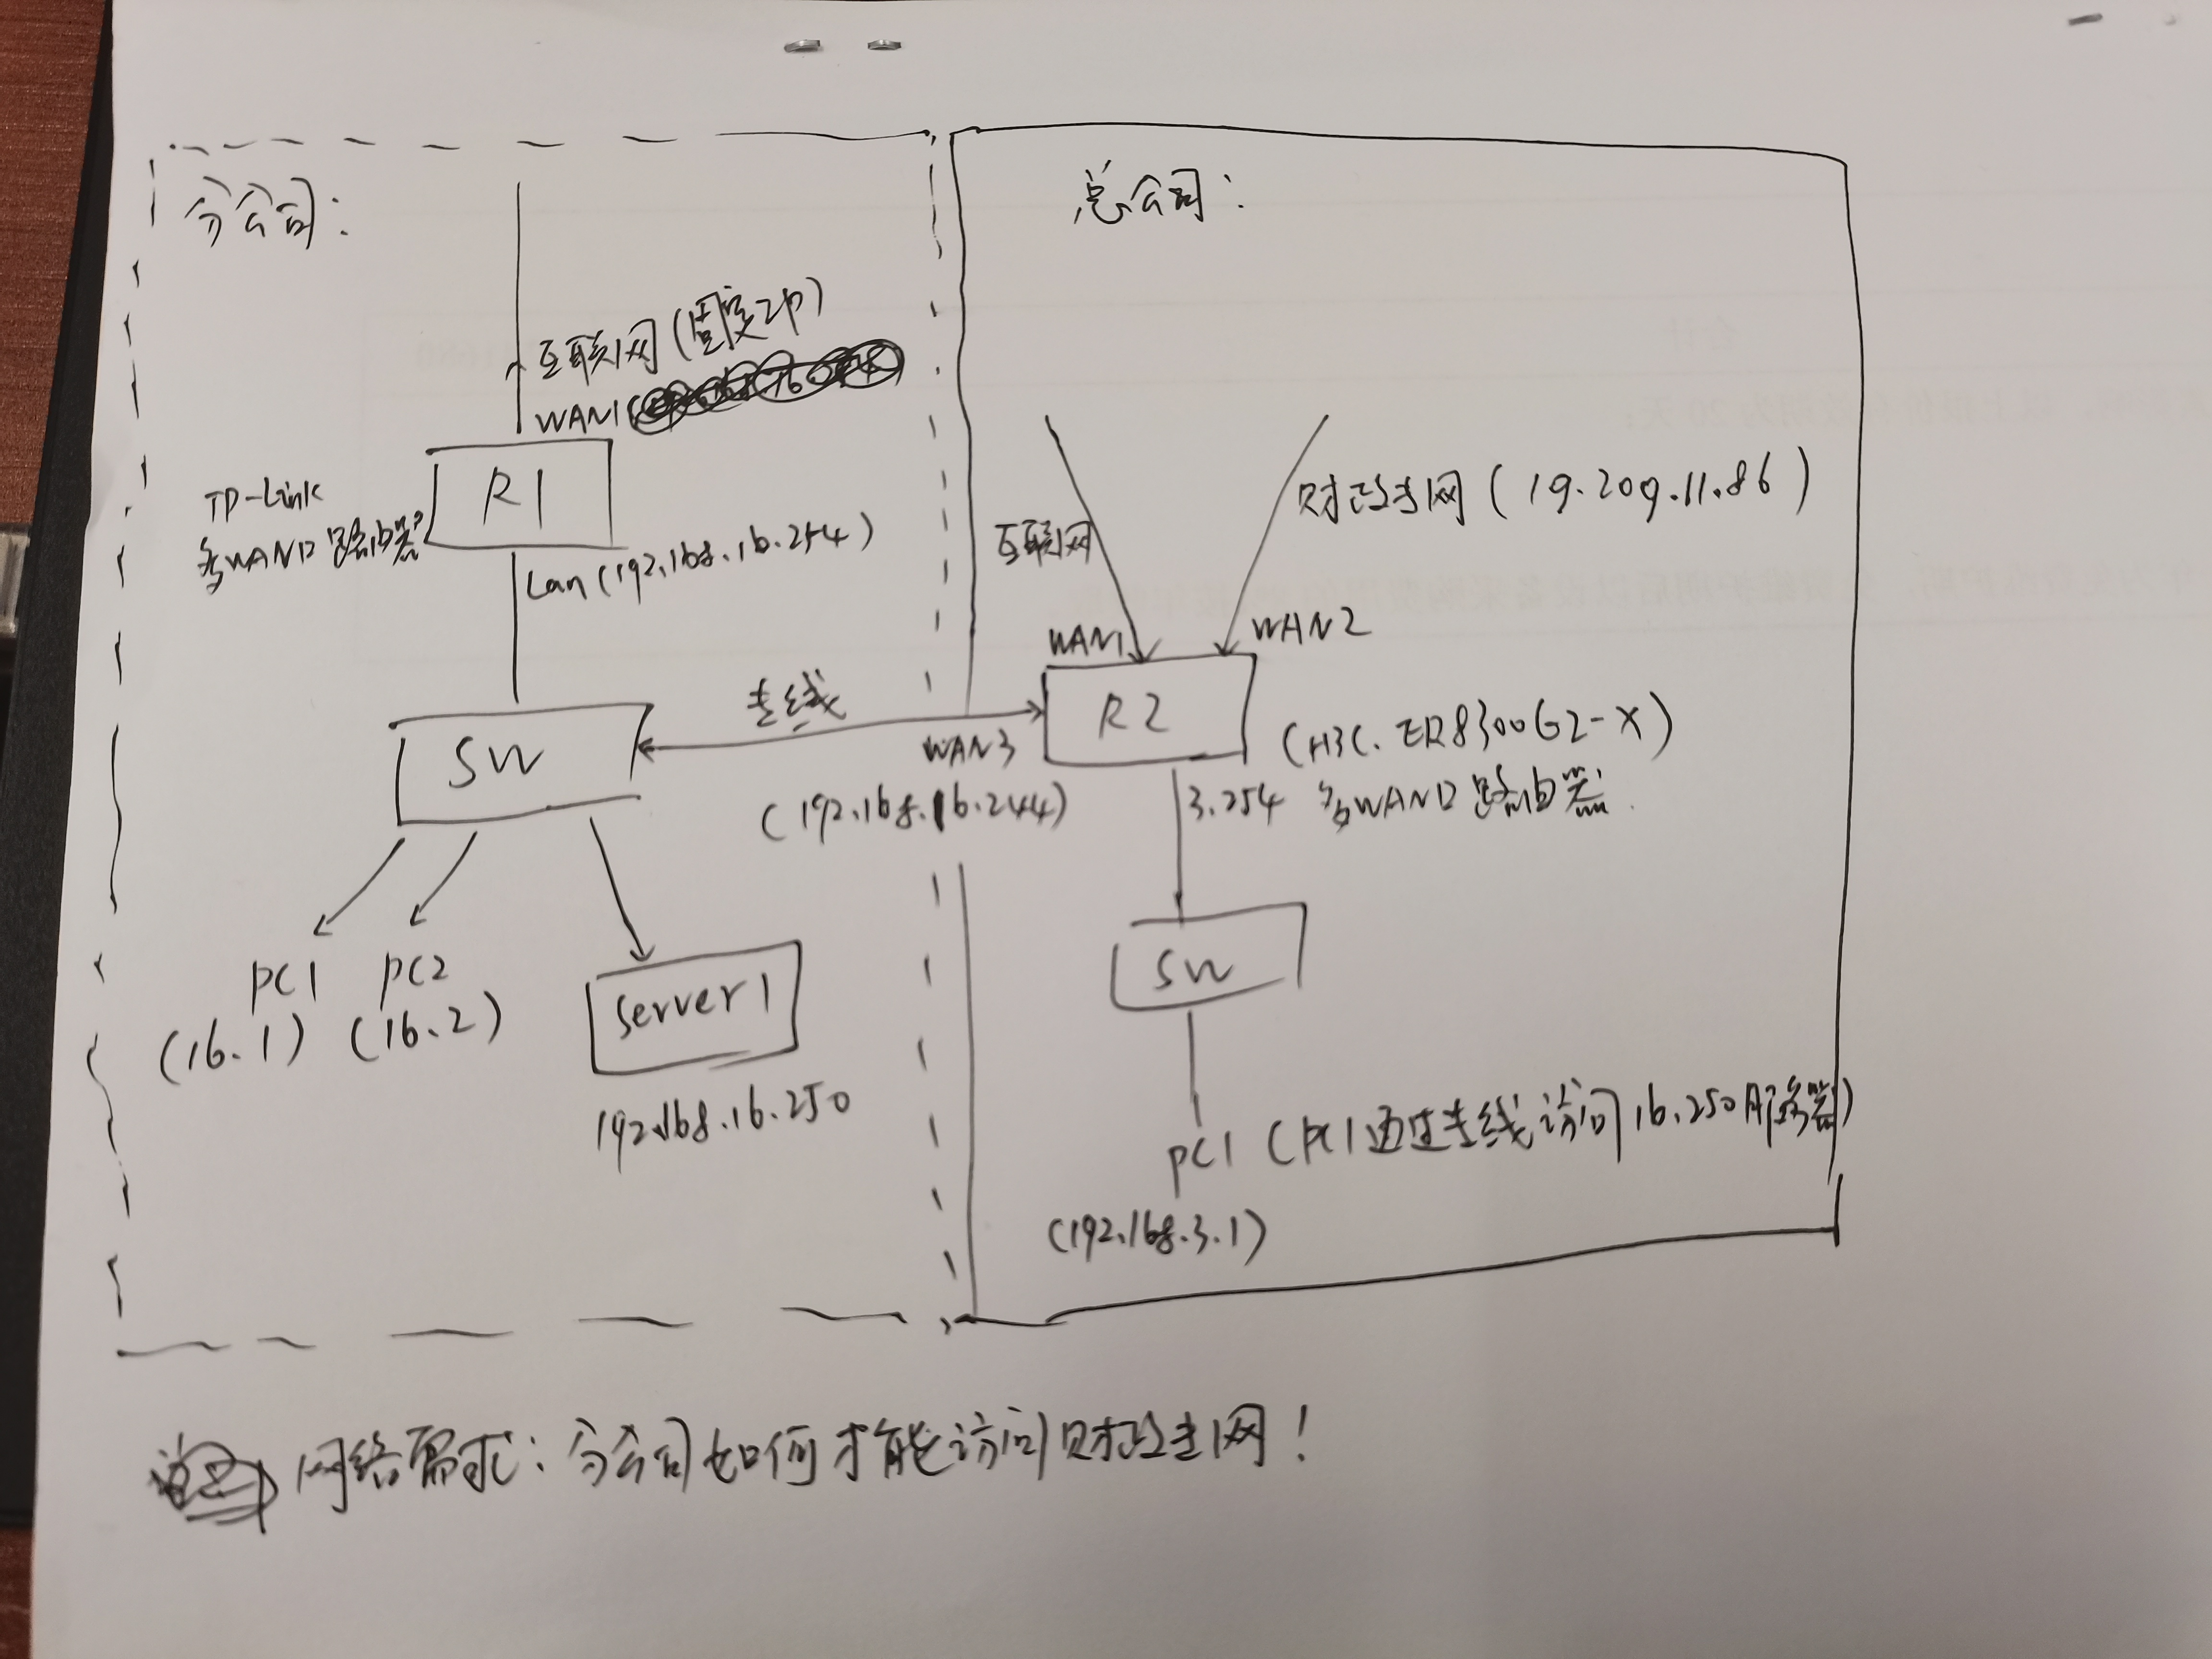 分公司：
总公司：
互联网(固定IP)
WAN1
R1
TP-Link
多WAN口路由器
Lan(192.168.16.254)
互联网
财政专网(19.209.11.86)
WAN1
WAN2
R2
(H3C. ER8300G2-X)
多WAN口路由器
3.254
专线
WAN3
(192.168.16.244)
SW
PC1
(16.1)
PC2
(16.2)
Server1
192.168.16.250
SW
PC1 (PC1通过专线访问16.250服务器)
(192.168.3.1)
网络需求：分公司如何才能访问财政专网！